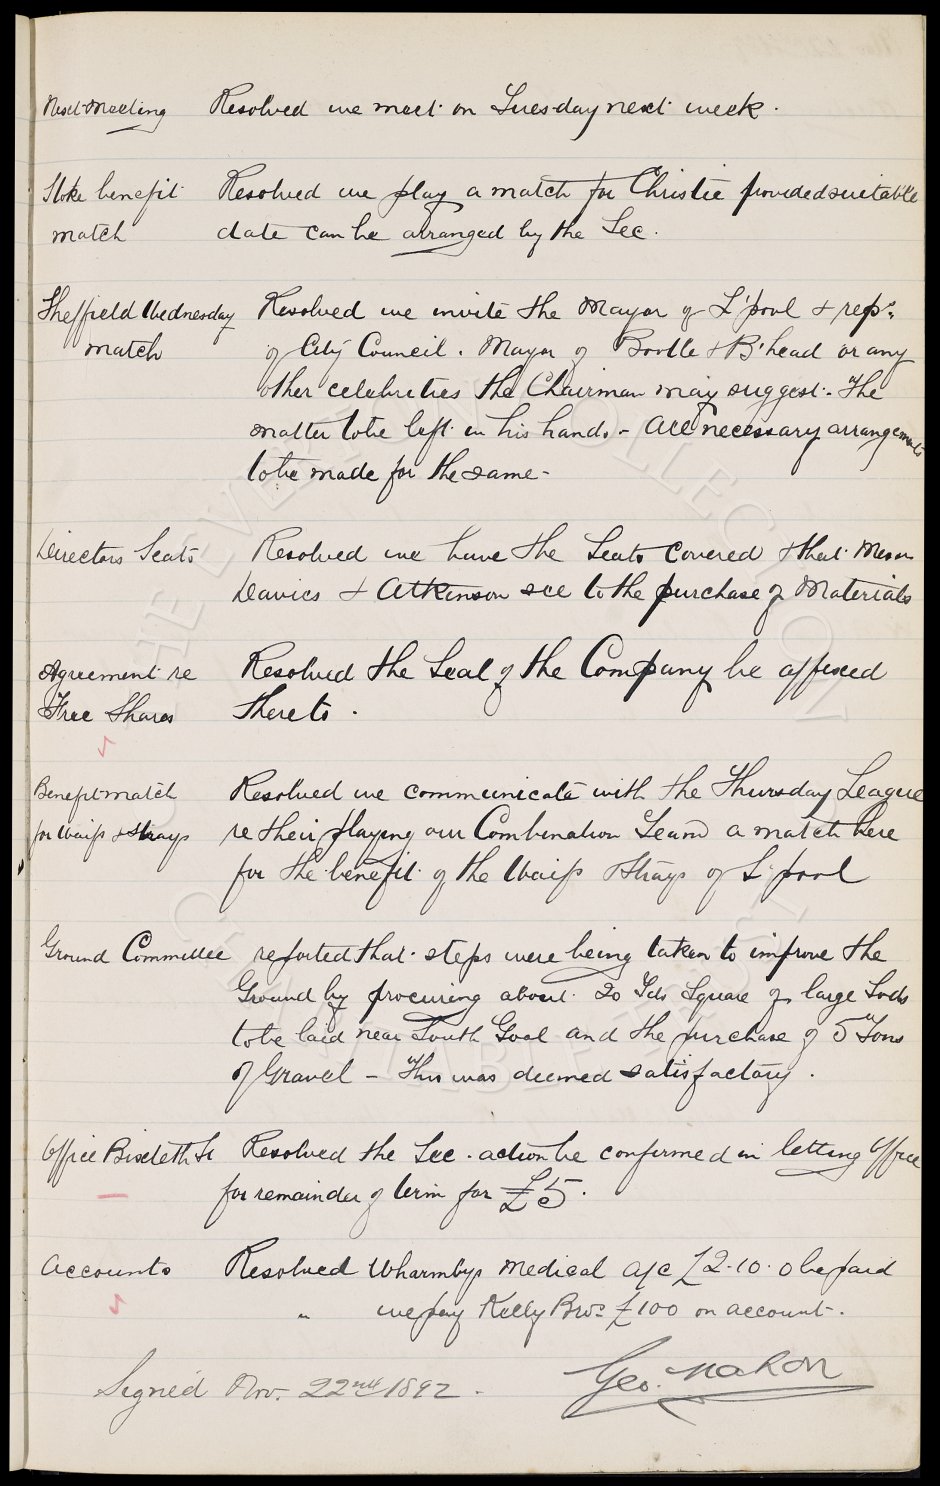 Next Meeting Resolved we meet on Tuesday next week.
Stoke benefit Resolved we play a match for Christie provided suitable
match date can be arranged by the Sec.
Sheffield Wednesday Resolved we invite the Mayor of L'pool & reps.
match of City Council. Mayor of Bootle & B'head or any
other celebrities the Chairman may suggest. The
matter to be left in his hands. - All necessary arrangements
to be made for the same -
Directors Seats Resolved we have the Seats covered & that Messrs
Davies & Atkinson see to the purchase of Materials
Agreement re Resolved the Seal of the Company be affixed
Free Shares thereto.
Benefit match Resolved we communicate with the Thursday League
for Waifs & Strays re their playing our Combination Team a match here
for the benefit of the Waifs & Strays of L'pool
Ground Committee reported that steps were being taken to improve the
Ground by procuring about 20 Yds Square of large Sods
to be laid near South Goal and the purchase of 5 Tons
of Gravel - This was deemed satisfactory.
Office Bixteth St Resolved the Sec. action be confirmed in letting Office
for remainder of term for £5.
Accounts Resolved Wharmbys Medical a/c £2.10.0 be paid
" we pay Kelly Bros £100 on account.
Signed Nov. 22nd 1892. Geo. Mahon
THE EVERTON COLLECTION
CHARITABLE TRUST